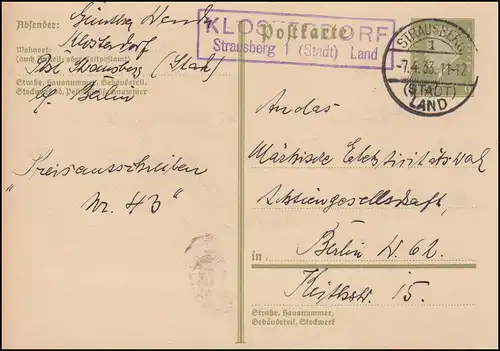 Absender: Günther
Klosterdorf
Wohnort:
(auch Zustell- oder Leitpostamt)
Post Strausberg (Stadt)
Straße, Hausnummer, Gebäudeteil,
Stockwerk
Berlin
"Preisausschreiben
Nr. 43"
KLOSTERDORF
Strausberg 1 (Stadt) Land
Postkarte
STRAUSBERG
1
-7.4.33. 11-12
(STADT)
LAND
An das
Märkische Elektricitätswerk
Actiengesellschaft,
in Berlin W. 62.
Keithstr. 15.
Straße, Hausnummer,
Gebäudeteil, Stockwerk